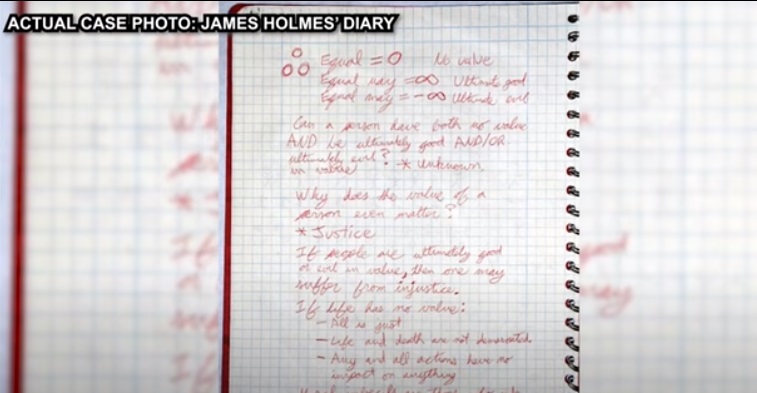 ACTUAL CASE PHOTO: JAMES HOLMES' DIARY
Equal = 0 No value
Equal may = ∞ Ultimate good
Equal may = -∞ Ultimate evil
Can a person have both no value
AND be ultimately good AND/OR
ultimately evil? * Unknown
in value
Why does the value of a
person even matter?
* Justice
If people are ultimately good
or evil in value, then one may
suffer from injustice.
If life has no value:
- All is just
- Life and death are not
- Any and all actions have no
impact on anything